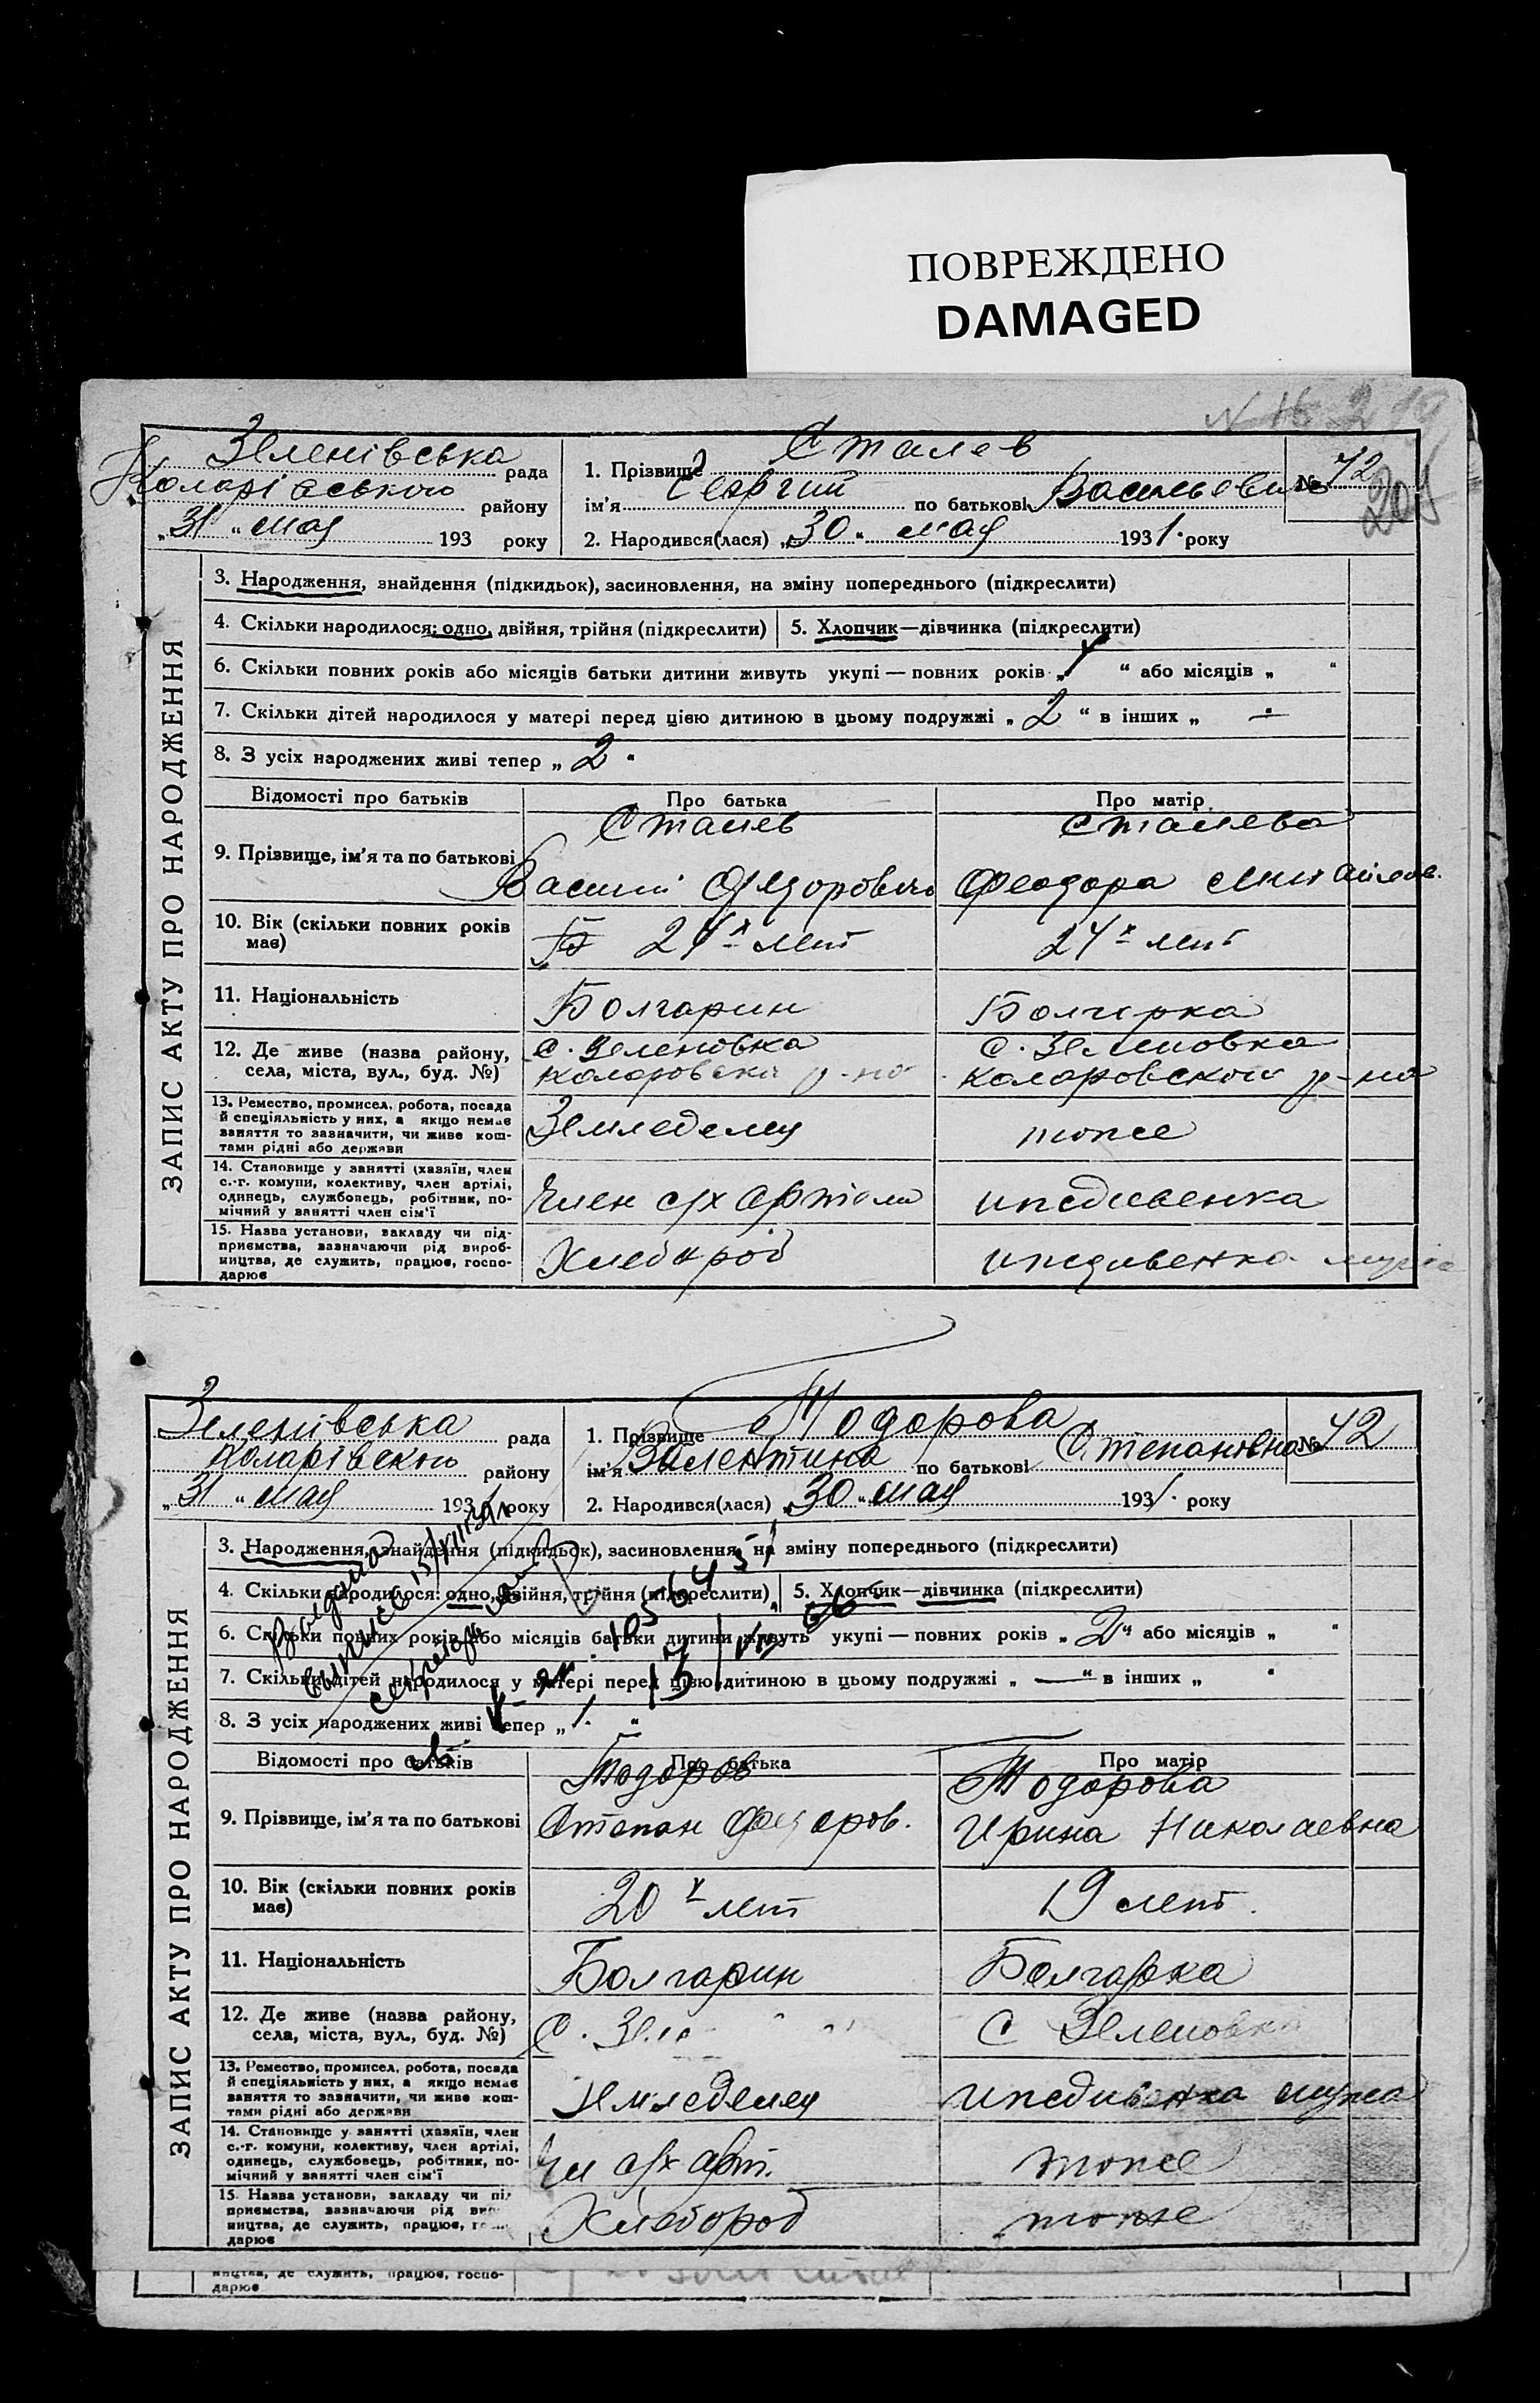 ПОВРЕЖДЕНО
DAMAGED
Зеленівська рада
Коларівського району
„31“ мая 193 року
1. Прізвище Сталев
ім'я Георгий по батькові Васильевич
№ 42
205
2. Народився(лася) „30“ мая 1931. року
ЗАПИС АКТУ ПРО НАРОДЖЕННЯ
3. Народження, знайдення (підкидьок), засиновлення, на зміну попереднього (підкреслити)
4. Скільки народилося: одно, двійня, трійня (підкреслити)
5. Хлопчик—дівчинка (підкреслити)
6. Скільки повних років або місяців батьки дитини живуть укупі — повних років „ “ або місяців „ “
7. Скільки дітей народилося у матері перед цією дитиною в цьому подружжі „ 2 “ в інших „ — “
8. З усіх народжених живі тепер „ 2 “
Відомості про батьків Про батька Про матір
9. Прізвище, ім'я та по батькові
Сталев
Василий Федорович
Сталева
Феодора
10. Вік (скільки повних років
має)
24х лет
24х лет
11. Національність
Болгарин
Болгарка
12. Де живе (назва району,
села, міста, вул., буд. №)
с. Зеленовка
Коларовского р-на
с. Зеленовка
Коларовского р-на
13. Ремество, промисел, робота, посада
й спеціяльність у них, а якщо немає
заняття то зазначити, чи живе кош-
тами рідні або держави
Земледелец
тоже
14. Становище у занятті (хазяїн, член
с.-г. комуни, колективу, член артілі,
одинець, службовець, робітник, по-
мічний у занятті член сім'ї
Член с/х артели
иждивенка
15. Назва установи, закладу чи під-
приємства, зазначаючи рід вироб-
ництва, де служить, працює, госпо-
дарює
Хлебороб
иждивенка мужа
Зеленівська рада
Коларівского району
„31“ мая 1931 року
1. Прізвище Тодорова
ім'я Валентина по батькові Степановна
№ 42
2. Народився(лася) „30“ мая 1931. року
ЗАПИС АКТУ ПРО НАРОДЖЕННЯ
3. Народження, знайдення (підкидьок), засиновлення, на зміну попереднього (підкреслити)
4. Скільки народилося: одно, двійня, трійня (підкреслити)
5. Хлопчик—дівчинка (підкреслити)
6. Скільки повних років або місяців батьки дитини живуть укупі — повних років „ 2 “ або місяців „ “
7. Скільки дітей народилося у матері перед цією дитиною в цьому подружжі „ — “ в інших „ “
8. З усіх народжених живі тепер „ 1. “
Відомості про батьків Про батька Про матір
9. Прізвище, ім'я та по батькові
Тодоров
Степан Федоров.
Тодорова
Ирина Николаевна
10. Вік (скільки повних років
має)
20х лет
19 лет.
11. Національність
Болгарин
Болгарка
12. Де живе (назва району,
села, міста, вул., буд. №)
С.
С Зеленовка
13. Ремество, промисел, робота, посада
й спеціяльність у них, а якщо немає
заняття то зазначити, чи живе кош-
тами рідні або держави
Земледелец
иждивенка мужа
14. Становище у занятті (хазяїн, член
с.-г. комуни, колективу, член артілі,
одинець, службовець, робітник, по-
мічний у занятті член сім'ї
Чл с/х арт.
тоже
15. Назва установи, закладу чи
приємства, зазначаючи рід
ництва, де служить, працює,
дарює
Хлебороб
тоже
ництва, де служить, працює, госпо-
дарює